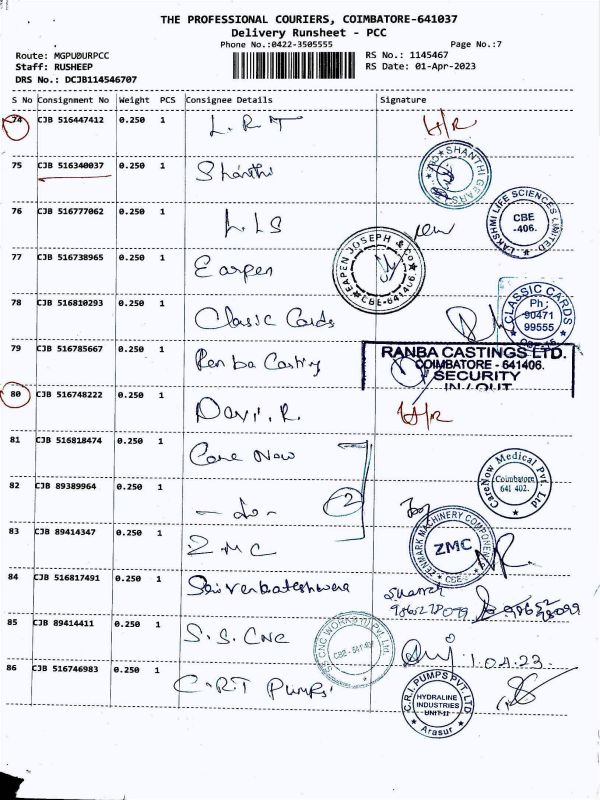 THE PROFESSIONAL COURIERS, COIMBATORE-641037
Delivery Runsheet - PCC
Phone No.:0422-3505555 Page No.:7
Route: MGPU0URPCC RS No.: 1145467
Staff: RUSHEEP RS Date: 01-Apr-2023
DRS No.: DCJB114546707
S No Consignment No Weight PCS Consignee Details Signature
74 CJB 516447412 0.250 1 L.R.T H/R
75 CJB 516340037 0.250 1 Shanthi SHANTHI GEARS
76 CJB 516777062 0.250 1 L.L.S LAKSHMI LIFE SCIENCES LIMITED CBE -406.
77 CJB 516738965 0.250 1 Earpen EAPEN JOSEPH & Co CBE-641406.
78 CJB 516810293 0.250 1 Classic Cards CLASSIC CARDS Ph; 90471 99555
79 CJB 516785667 0.250 1 Ranba Casting RANBA CASTINGS LTD.
COIMBATORE - 641406.
SECURITY
IN / OUT
80 CJB 516748222 0.250 1 Davi.R. H/R
81 CJB 516818474 0.250 1 Care Now CareNow Medical Pvt Ltd Coimbatore 641 402.
82 CJB 89389964 0.250 1 - do - 2
83 CJB 89414347 0.250 1 ZMC ZENMARK MACHINERY COMPONENTS ZMC CBE
84 CJB 516817491 0.250 1 Sri venkateshwera 98652 78099
85 CJB 89414411 0.250 1 S.S. CNC CNC WORKS Pvt Ltd. 1.04.23.
86 CJB 516746983 0.250 1 C.R.I PUMPS C.R.I. PUMPS PVT. LTD HYDRALINE INDUSTRIES UNIT-II Arasur